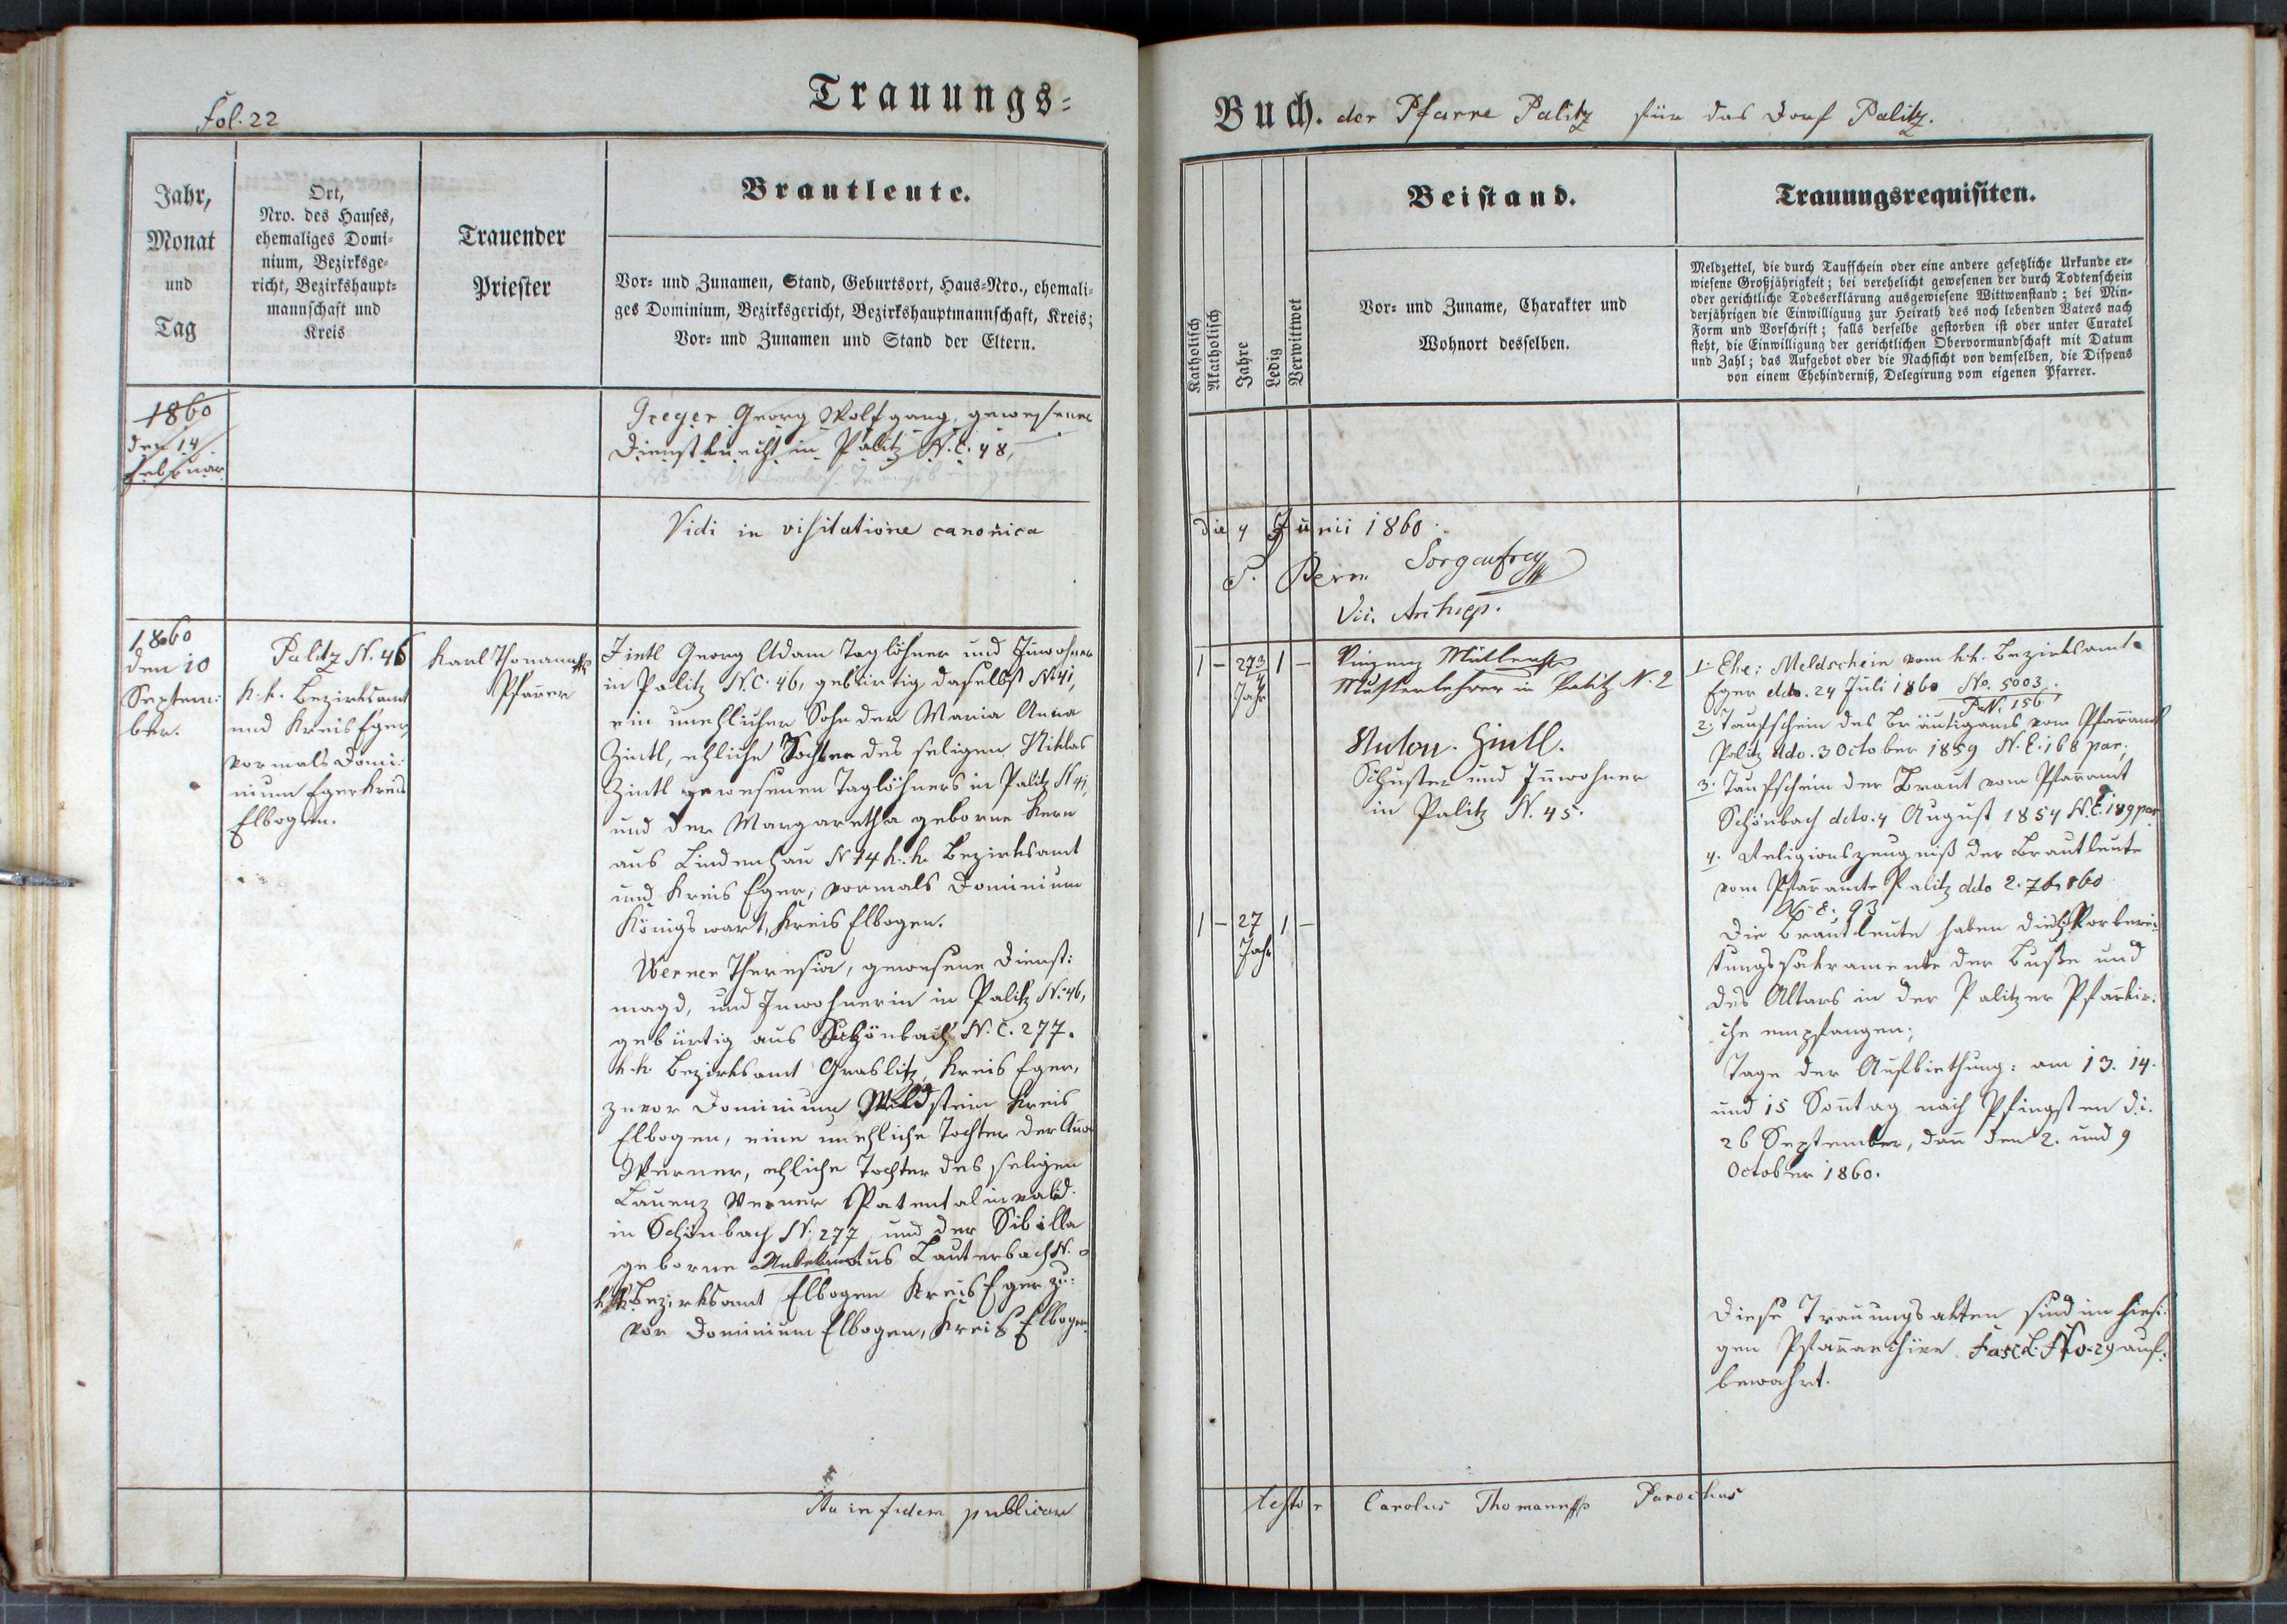 Fol. 22
Trauungs=
Buch. der Pfarre Palitz für das Dorf Palitz.
Jahr,
Monat
und
Tag
Ort,
Nro. des Hauses,
ehemaliges Domi=
nium, Bezirksge=
richt, Bezirkshaupt=
mannschaft und
Kreis
Trauender
Priester
Brautleute.
Vor= und Zunamen, Stand, Geburtsort, Haus=Nro., ehemali=
ges Dominium, Bezirksgericht, Bezirkshauptmannschaft, Kreis;
Vor= und Zunamen und Stand der Eltern.
Katholisch
Akatholisch
Jahre
Ledig
Verwittwet
Beistand.
Vor= und Zuname, Charakter und
Wohnort desselben.
Trauungsrequisiten.
Meldzettel, die durch Taufschein oder eine andere gesetzliche Urkunde er=
wiesene Großjährigkeit; bei verehelicht gewesenen der durch Todtenschein
oder gerichtliche Todeserklärung ausgewiesene Wittwenstand; bei Min=
derjährigen die Einwilligung zur Heirath des noch lebenden Vaters nach
Form und Vorschrift; falls derselbe gestorben ist oder unter Curatel
steht, die Einwilligung der gerichtlichen Obervormundschaft mit Datum
und Zahl; das Aufgebot oder die Nachsicht von demselben, die Dispens
von einem Ehehinderniß, Delegirung vom eigenen Pfarrer.
1860
den 14
Februar
Georg Wolfgang, gewesener
Dienstknecht in Palitz N.C. 48,
Vidi in visitatione canonica
die 4 Junii 1860.
Sorgenfrey
Vic. Archiep.
1860
den 10
Septem:
ber.
Palitz N. 46
k.k. Bezirksamt
und Kreis Eger
vormals Domi:
nium Eger Kreis
Elbogen.
Karl Thomann
Pfarrer
Zintl Georg Adam Taglöhner und Inwohner
in Palitz N.C. 46, gebürtig daselbst N. 41,
ein unehlicher Sohn der Maria Anna
Zintl, ehliche Tochter des seligen Niklas
Zintl gewesenen Taglöhners in Palitz N 41,
und der Margaretha geborne Kern
aus Lindenhau N 14 k.k. Bezirksamt
und Kreis Eger, vormals Dominium
Königswart, Kreis Elbogen.
Werner Theresia, gewesene Dienst:
magd, und Inwohnerin in Palitz N. 46,
gebürtig aus Schönbach N.C. 277.
k.k. Bezirksamt Graslitz, Kreis Eger,
zuvor Dominium Wildstein Kreis
Elbogen, eine unehliche Tochter der Anna
Werner, ehliche Tochter des seligen
Werner Patentalinvalid.
in Schönbach N. 277 und der Sibilla
geborne aus Lauterbach N.
k.k. Bezirksamt Elbogen Kreis Eger zu:
vor Dominium Elbogen, Kreis Elbogen.
1 – 27 3/4 Jahr 1 –
1 – 27 Jahr 1 –
Vinzenz Müller
Musterlehrer in Palitz N. 2
Anton Zintl.
Schuster und Innwohner
in Palitz N. 45.
1. Ehe: Meldschein vom k.k. Bezirksamte
Eger ddo. 24 Juli 1860 No. 5003.
P.N. 156
2. Taufschein des Bräutigams vom Pfarramt
Palitz ddo. 3 October 1859 N.E. 168 par;
3. Taufschein der Braut vom Pfarramt
Schönbach ddo. 4 August 1854 N.E. 189 par
4. Religionszeugniß der Brautleute
vom Pfarramte Palitz ddo 2. 7b. 860
N.E. 93
Die Brautleute haben die Vorberei:
tungssakramente der Buße und
des Altars in der Palitzer Pfarrkir:
che empfangen;
Tage der Aufbiethung: am 13. 14.
und 15 Sonntag nach Pfingsten d.i.
26 September, dann den 2. und 9
October 1860.
Diese Trauungsakten sind im hiesi:
gen Pfarrarchive Fascl. No. 29 auf:
bewahrt.
Ita in fidem publicam
testor Carolus Thomann Parochus